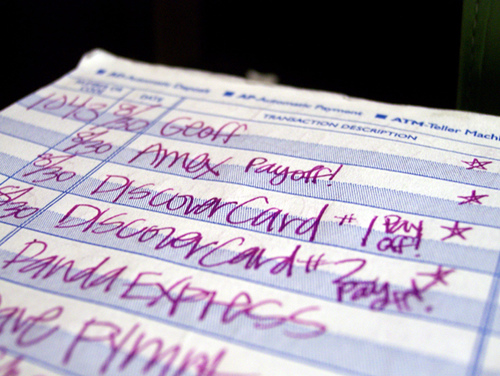 AP-Automatic Deposit ■ AP-Automatic Payment ■ ATM-Teller Mach
CODE OR DATE TRANSACTION DESCRIPTION
1043 8/30 Geoff
8/30 Amex Payoff! ☆
8/30 Discover Card #1 Pay off! ☆
8/30 Discover Card #2 Payoff! ☆
Panda Express
ave Pymnt